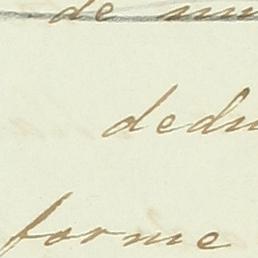 de
dedu
forme